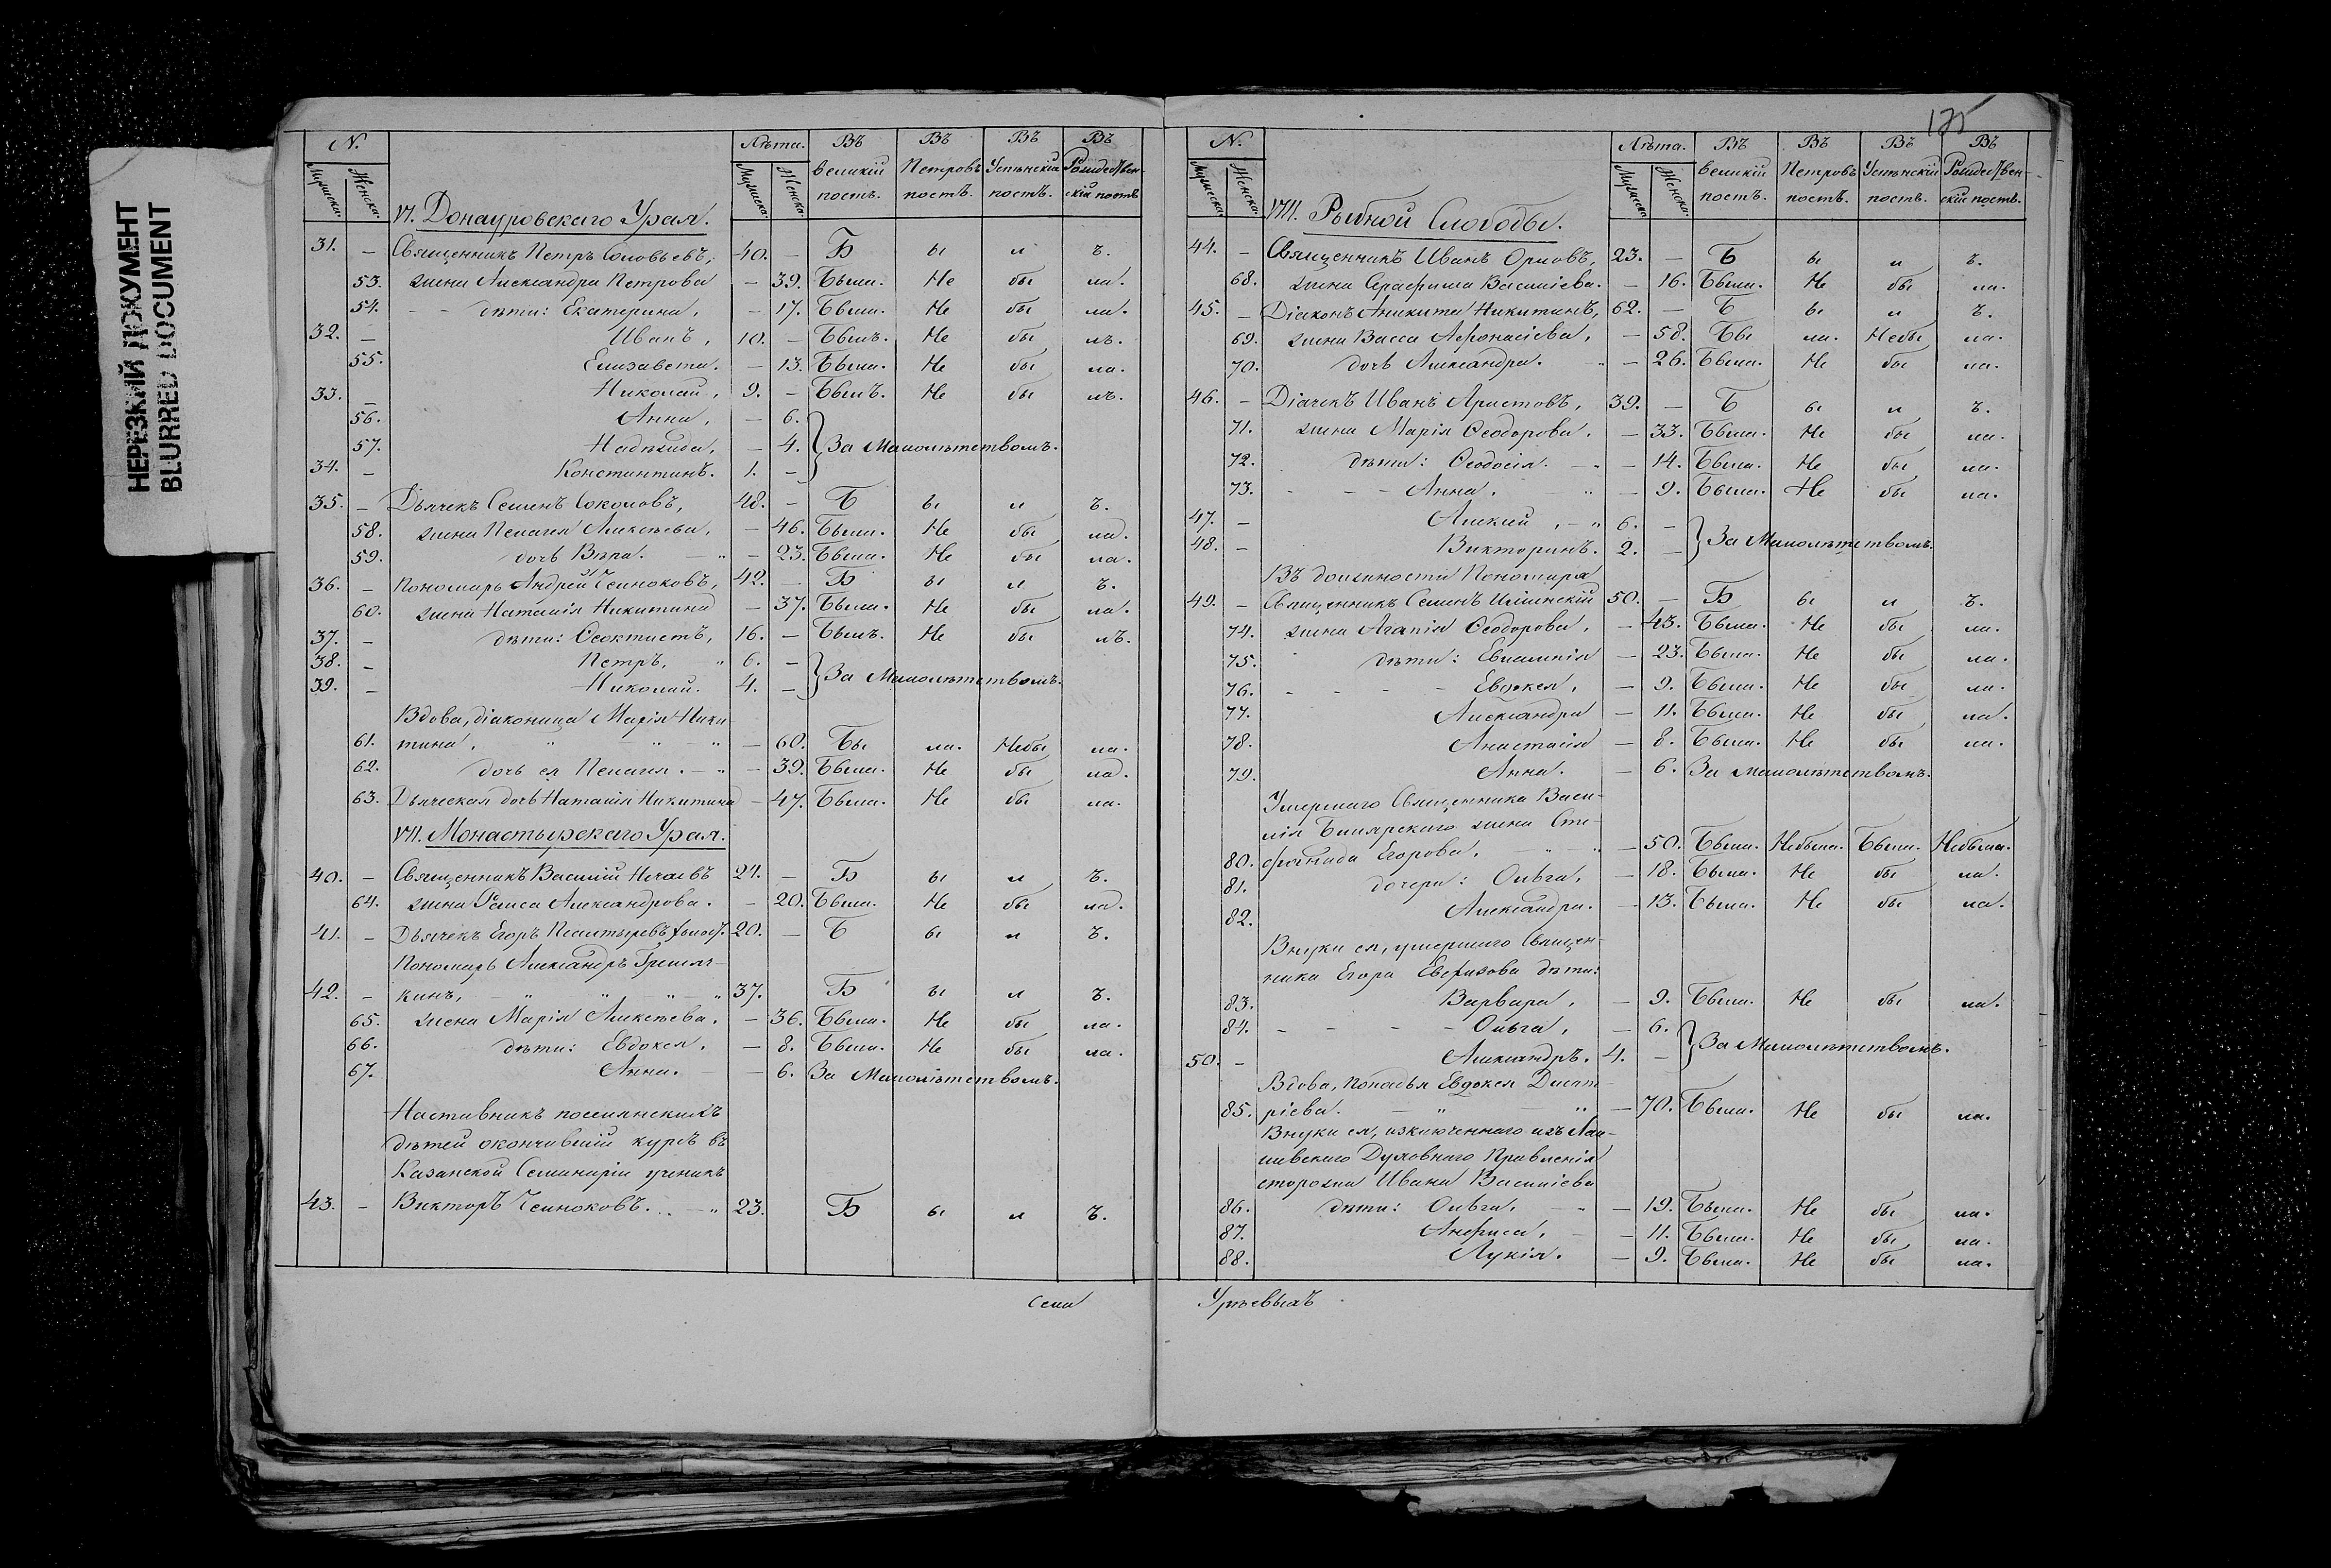 НЕРЕЗКИЙ ДОКУМЕНТ
BLURRED DOCUMENT
N. Лѣта. Въ Въ Въ Въ
Мужеска. Женска. Мужеска. Женска. великій Петровъ Успѣнскій Рождествен-
постъ. постъ. постъ. скій постъ
VI. Донауровскаго Урая.
31. – Священникъ Петръ Соловьевъ, 40. – Б ы л ъ.
53. жена Александра Петрова – 39. Была. Не бы ла.
54. – – дѣти: Екатерина, – 17. Была. Не бы ла.
32. – Иванъ, 10. – Былъ. Не бы лъ.
55. Елизавета. – 13. Была. Не бы ла.
33. – Николай, 9. – Былъ. Не бы лъ.
56. Анна, – 6.
57. Надежда, – 4. } За Малолѣтствомъ.
34. – Константинъ. 1. –
35. – Дьячекъ Семенъ Соколовъ, 48. – Б ы л ъ.
58. жена Пелагея Алексѣева, – 46. Была. Не бы ла.
59. дочь Вѣра. – „ – 23. Была. Не бы ла.
36. – Пономарь Андрей Челноковъ, 42. – Б ы л ъ.
60. жена Наталія Никитина – 37. Была. Не бы ла.
37. – дѣти: Ѳеоктистъ, 16. – Былъ. Не бы лъ.
38. – Петръ, „ 6. – } За Малолѣтствомъ.
39. – Николай. 4. –
Вдова, діаконица Марія Ники
61. тина, „ „ „ – 60. Бы ла. Небы ла.
62. дочь ея Пелагея. – „ – 39. Была. Не бы ла.
63. Дьяческая дочь Наталія Никитина – 47. Была. Не бы ла.
VII. Монастырскаго Урая.
40. – Священникъ Василій Нечаевъ 24. – Б ы л ъ.
64. жена Раиса Александрова. – 20. Была. Не бы ла.
41. – Дьячекъ Егоръ Псалтыревъ 20. – Б ы л ъ.
Пономарь Александръ Гремяч-
42. – кинъ, – „ „ – „ – „ 37. Б ы л ъ.
65. жена Марія Алексѣева. – 36. Была. Не бы ла.
66. дѣти: Евдокея, – 8. Была. Не бы ла.
67. Анна. – – 6. За Малолѣтствомъ.
Наставникъ поселянскихъ
дѣтей окончившій курсъ въ
Казанской Семинаріи ученикъ
43. – Викторъ Челноковъ. .. – „ 23. Б ы л ъ.
Села
125
N. Лѣта. Въ Въ Въ Въ
Мужеска. Женска. Мужеска. Женска. великій Петровъ Успѣнскій Рождествен-
постъ. постъ. постъ. скій постъ.
VIII. Рыбной Слободы.
44. – Священникъ Иванъ Орловъ, 23. – Б ы л ъ.
68. жена Серафима Василіева. – 16. Была. Не бы ла.
45. – Діаконъ Аникита Никитинъ, 62. – Б ы л ъ.
69. жена Васса Афонасіева, – 58. Бы ла. Небы ла.
70. дочь Александра. „ – 26. Была. Не бы ла.
46. – Діачекъ Иванъ Аристовъ, 39. – Б ы л ъ.
71. жена Марія Ѳеодорова. – 33. Была. Не бы ла.
72. дѣти: Ѳеодосія. – „ – 14. Была. Не бы ла.
73. – – – Анна. „ – 9. Была. Не бы ла.
47. – Алексій, – „ 6. –
48. – Викторинъ. 2. – } За Малолѣтствомъ.
Въ должности Пономаря
49. – Священникъ Семенъ Ильинскій 50. – Б ы л ъ.
74. жена Агапія Ѳеодорова, – 43. Была. Не бы ла.
75. дѣти: Евлампія – 23. Была. Не бы ла.
76. – – – – Евдокея, – 9. Была. Не бы ла.
77. Александра – 11. Была. Не бы ла.
78. Анастасія – 8. Была. Не бы ла.
79. Анна. – 6. За малолѣтствомъ.
Умершаго Священника Васи-
лія Билярскаго жена Сте-
80. фанида Егорова. – „ – „ – 50. Была. Небыла. Была. Небыла.
81. дочери: Ольга, – 18. Была. Не бы ла.
82. Александра. – 13. Была. Не бы ла.
Внуки ея, умершаго Священ-
ника Егора дѣти:
83. Варвара, – 9. Была. Не бы ла.
84. – – – – Ольга, – 6.
50. – Александръ. 4. – } За Малолѣтствомъ.
Вдова, попадья Евдокея Дмит-
85. ріева. – „ – „ – 70. Была. Не бы ла.
Внуки ея, изключеннаго изъ Лаи-
шевскаго Духовнаго Правленія
сторожа Ивана Василіева
86. дѣти: Ольга, – „ – 19. Была. Не бы ла.
87. Анфиса, – – 11. Была. Не бы ла.
88. Лукія. – 9. Была. Не бы ла.
Урѣевыхъ